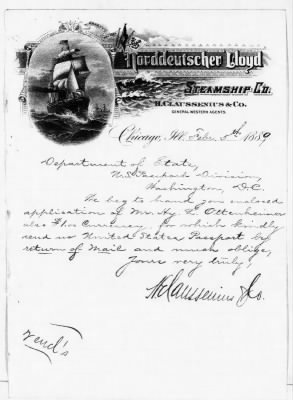 Norddeutscher Lloyd
STEAMSHIP CO.
H. CLAUSSENIUS & CO.
GENERAL WESTERN AGENTS.
Chicago, Ill. Feby. 5th 1889
Department of State,
U.S. Passport Division,
Washington, D.C.
We beg to hand you enclosed
application of Mr. Hy. L. Ottenheimer
also $1.00 Currency, for which kindly
send us United States Passport by
return of Mail and much oblige,
Yours very truly,
H. Claussenius & Co.